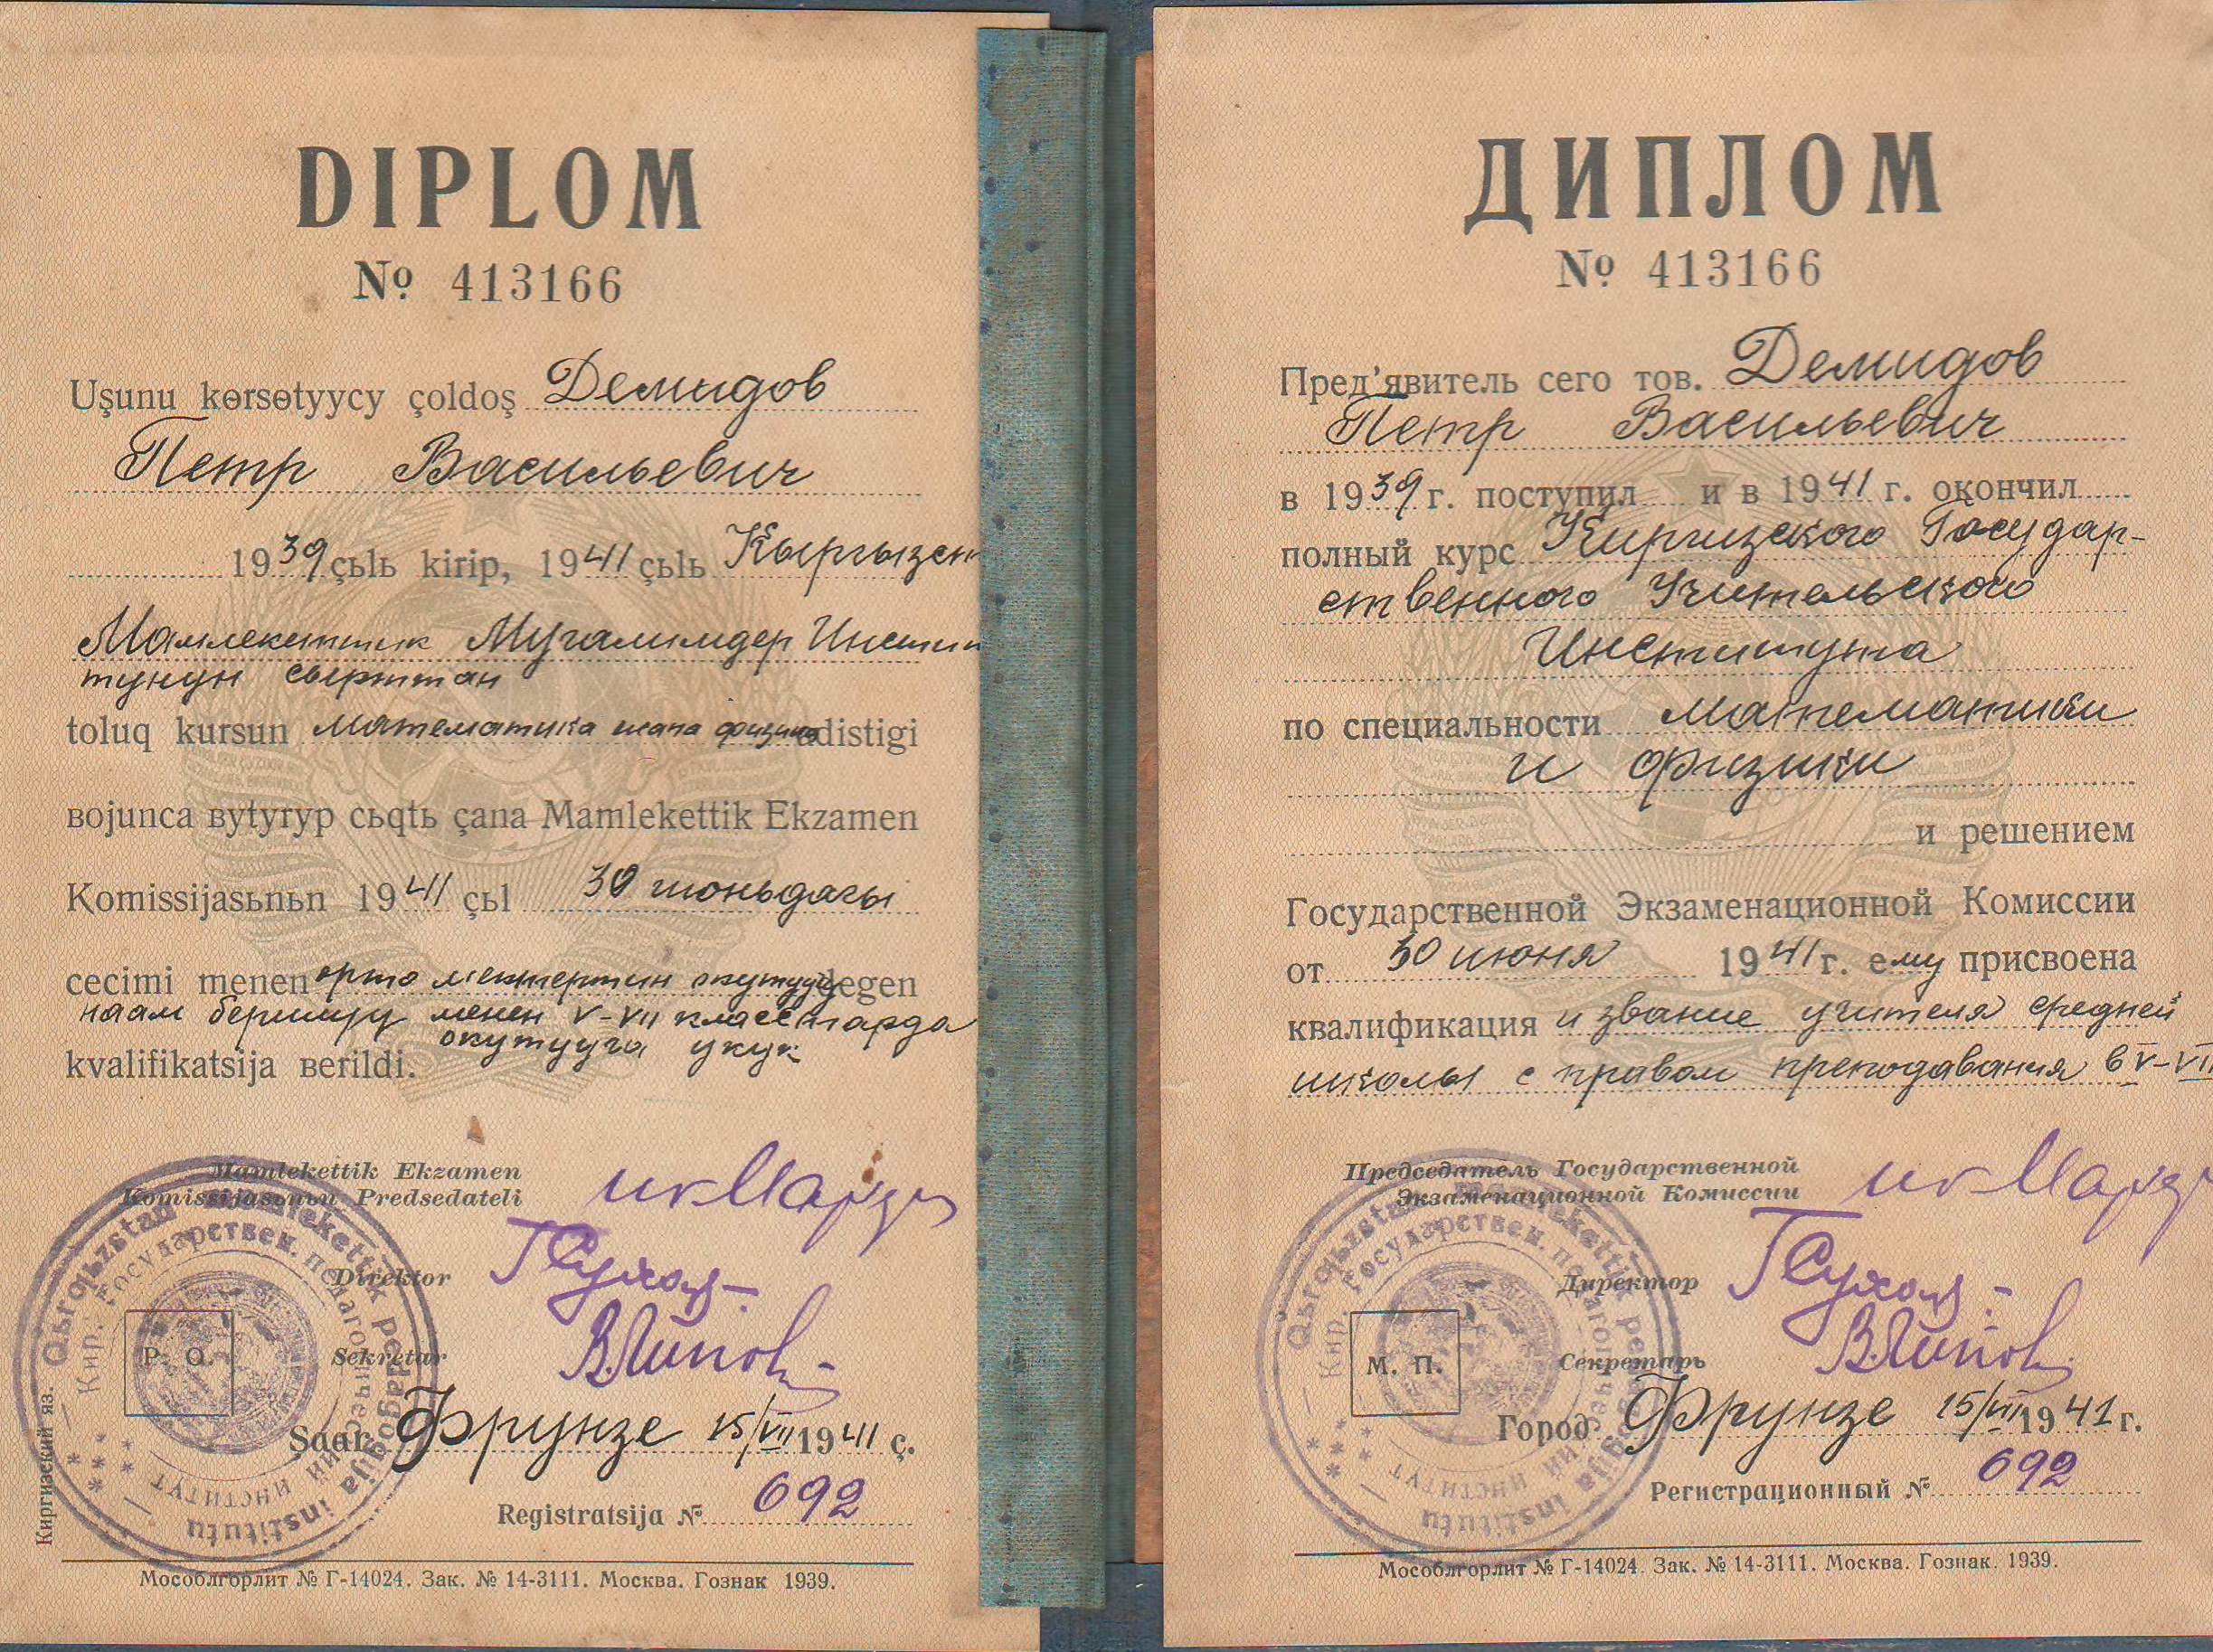 DIPLOM
№ 413166
Uşunu kɵrsɵtyycy çoldoş Демидов
Петр Васильевич
1939 çьlь kirip, 1941 çьlь Кыргызстан
Мамлекеттик Мугалимдер Инсти
тунун сырттан
toluq kursun математика жана физика adistigi
вojunca вytyryp cьqtь çana Mamlekettik Ekzamen
Komissijasьnьn 1941 çьl 30 июньдагы
cecimi menen орто мектептин окутуучу degen
наам берилүү менен V-VII классгарда
окутууга укук
kvalifikatsija вerildi.
Mamlekettik Ekzamen
Komissijasьnьn Predsedateli
Direktor
P. O.
Sekretar
Şaar Фрунзе 15/VII 1941 ç.
Registratsija № 692
Qьrqьzstan Mamlekettik pedagogija institutu
Кир. Государствен. педагогический институт
Киргизский яз.
Мособлгорлит № Г-14024. Зак. № 14-3111. Москва. Гознак 1939.
ДИПЛОМ
№ 413166
Пред'явитель сего тов. Демидов
Петр Васильевич
в 1939 г. поступил и в 1941 г. окончил
полный курс Киргизского Государ-
ственного Учительского
Института
по специальности математики
и физики
и решением
Государственной Экзаменационной Комиссии
от 30 июня 1941 г. ему присвоена
квалификация и звание учителя средней
школы с правом преподавания в V-VII
Председатель Государственной
Экзаменационной Комиссии
Директор
М. П.
Секретарь
Город Фрунзе 15/VII 1941 г.
Регистрационный № 692
Qьrqьzstan Mamlekettik pedagogija institutu
Кир. Государствен. педагогический институт
Мособлгорлит № Г-14024. Зак. № 14-3111. Москва. Гознак. 1939.